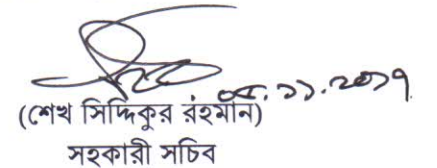 ০৫.১১.২০১৭
(শেখ সিদ্দিকুর রহমান)
সহকারী সচিব